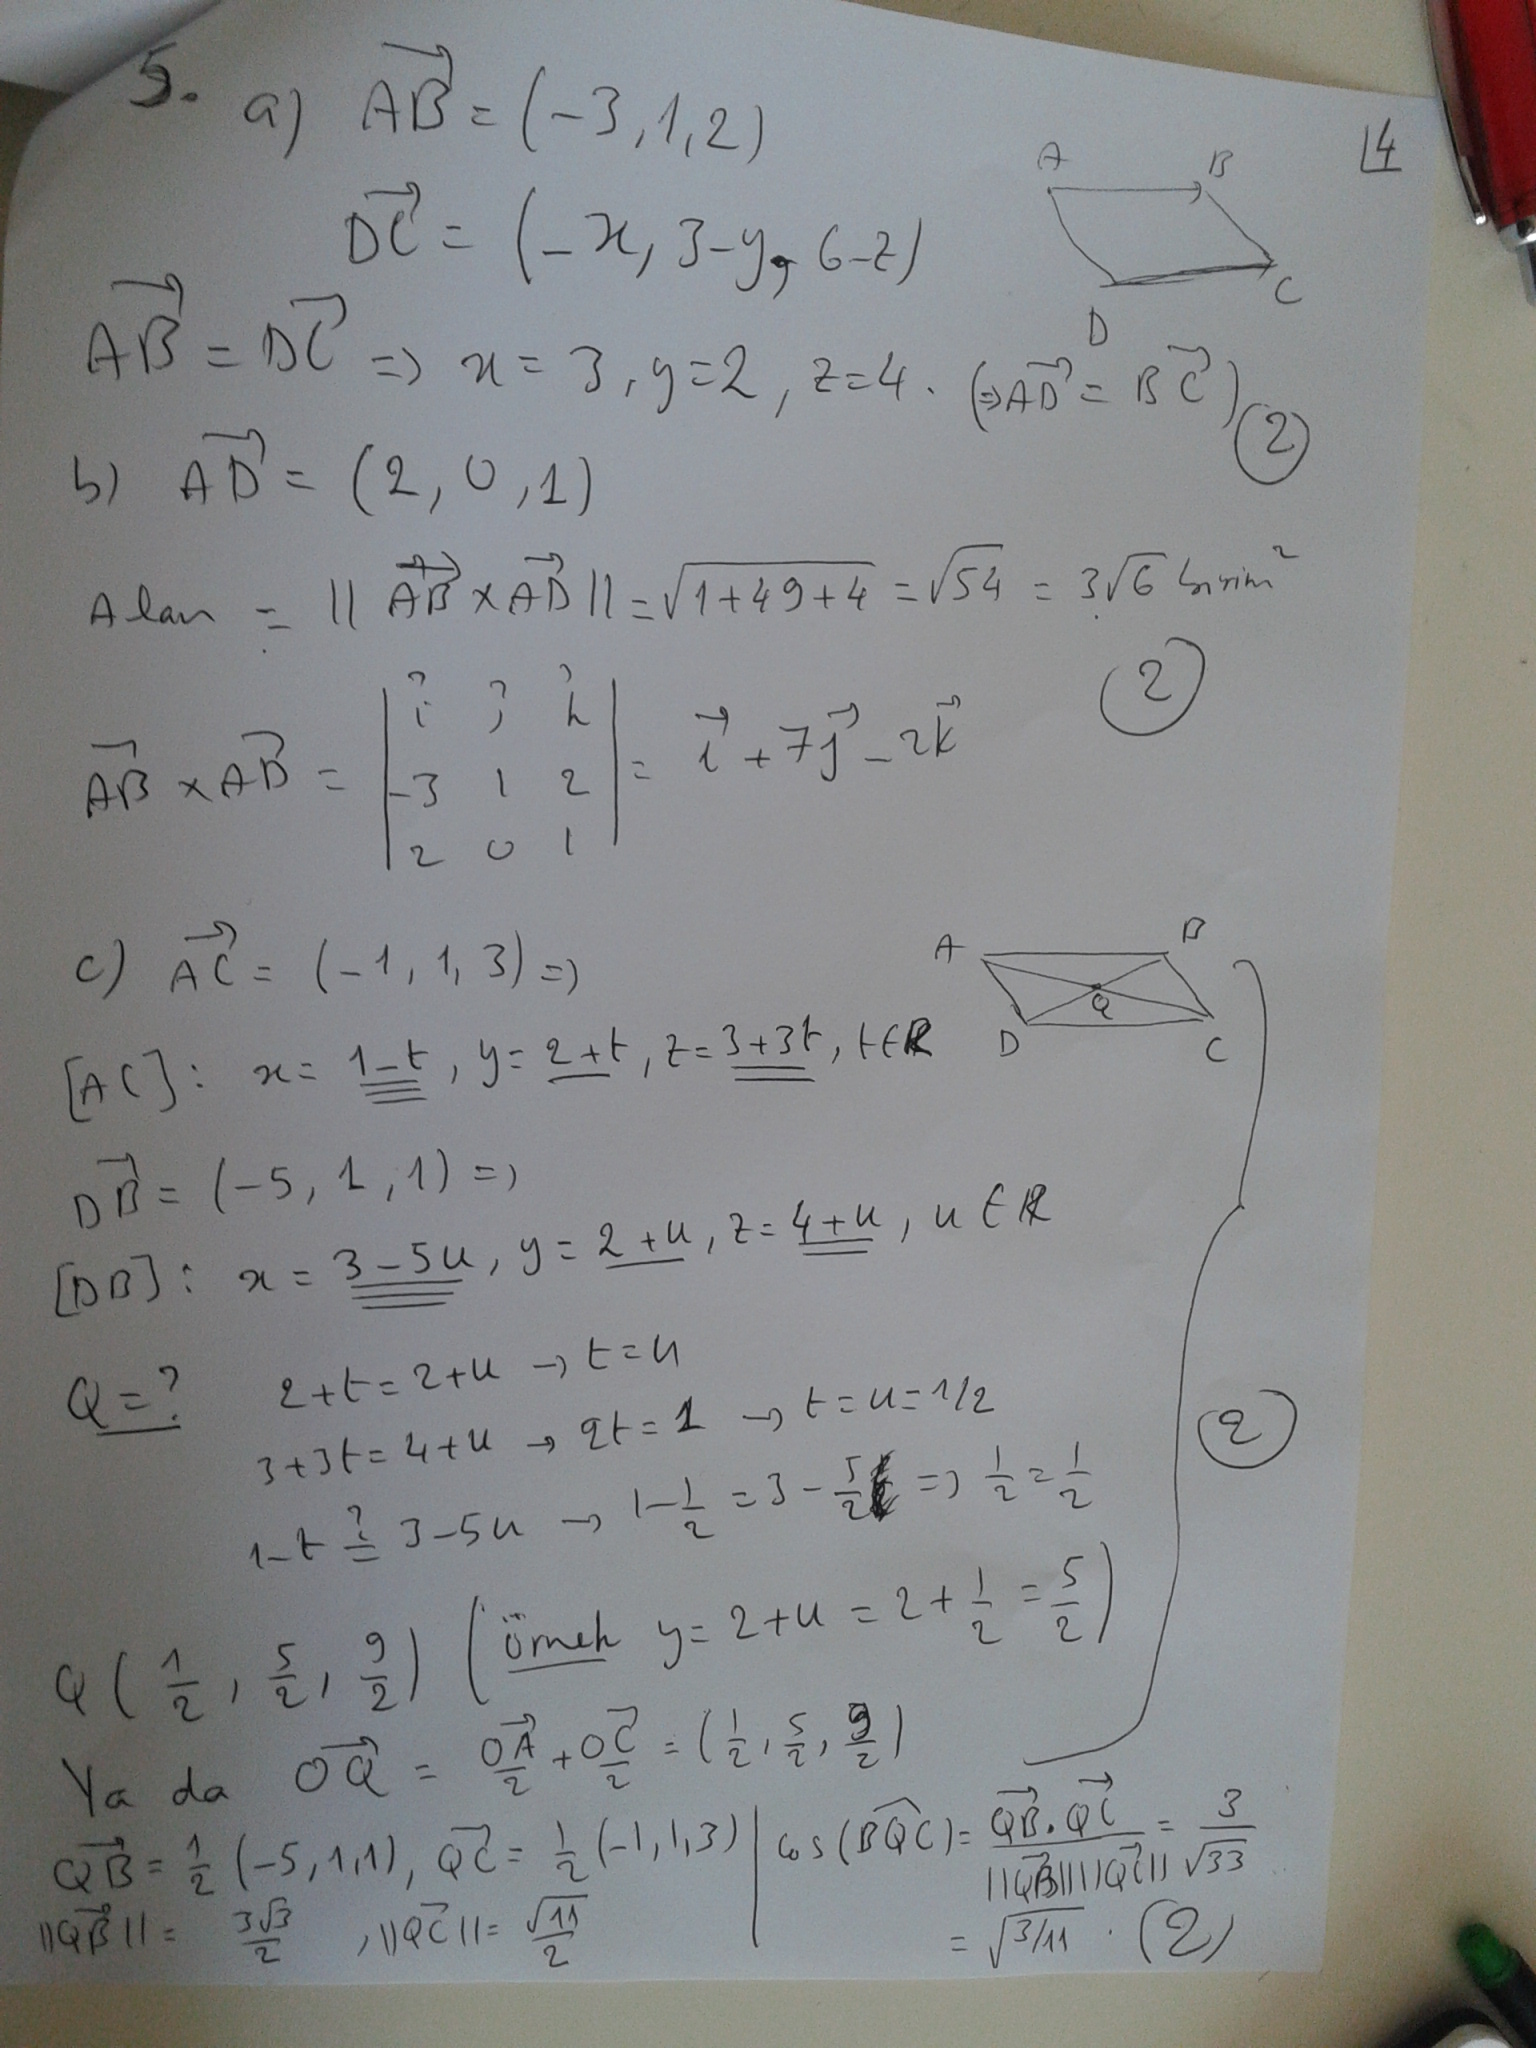 5. a) AB = (-3, 1, 2)
4
A B
DC = (-x, 3-y, 6-z)
D C
AB = DC => x = 3, y = 2, z = 4. (=> AD = BC) (2)
b) AD = (2, 0, 1)
Alan = || AB x AD || = √1+49+4 = √54 = 3√6 birim²
(2)
AB x AD = | i j k | = i + 7j - 2k
-3 1 2
2 0 1
A B
c) AC = (-1, 1, 3) =>
Q
D C
[AC]: x = 1-t, y = 2+t, z = 3+3t, t∈R
DB = (-5, 1, 1) =>
[DB]: x = 3-5u, y = 2+u, z = 4+u, u∈R
Q = ? 2+t = 2+u → t = u
3+3t = 4+u → 2t = 1 → t = u = 1/2
(2)
1-t ?= 3-5u → 1-1/2 = 3-5/2 => 1/2 = 1/2
Q (1/2, 5/2, 9/2) (örnek y = 2+u = 2+1/2 = 5/2)
Ya da OQ = OA/2 + OC/2 = (1/2, 5/2, 9/2)
QB = 1/2 (-5,1,1), QC = 1/2 (-1,1,3) | cos(BQC) = QB.QC / ||QB|| ||QC|| = 3/√33
||QB|| = 3√3/2, ||QC|| = √11/2
= √3/11 . (2)